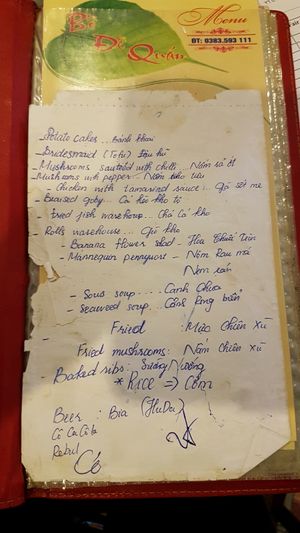 Menu
Bồ Đề Quán
ĐT: 0383.593 111
- Potato cakes ... bánh khoai
- Bridesmaid (Tofu) Đậu hũ
- Mushrooms sauteed with chilli .. Nấm sả ớt
- Muthrooms with pepper .. Nấm tiêu
- Chicken with tamarind sauce .. gà sốt me
- Braised goby .. Cá kho tộ
- Fried fish warehoup .. Chả Cá kho
- Rolls warehouse ... kho
- Banana flower salad - Hoa Chuối Trộn
- Mannequin pennywort - Nộm Rau má
Nem rán
- Sour soup .... Canh Chua
- Seaweed soup ... Canh rong biển
- Fried : Mắc Chiên Xù
Fried mushrooms : Nấm Chiên Xù
- Baked ribs : Sườn Nướng
* RICE => Cơm
Beer : Bia (HuDa)
Cô Ca Cô la